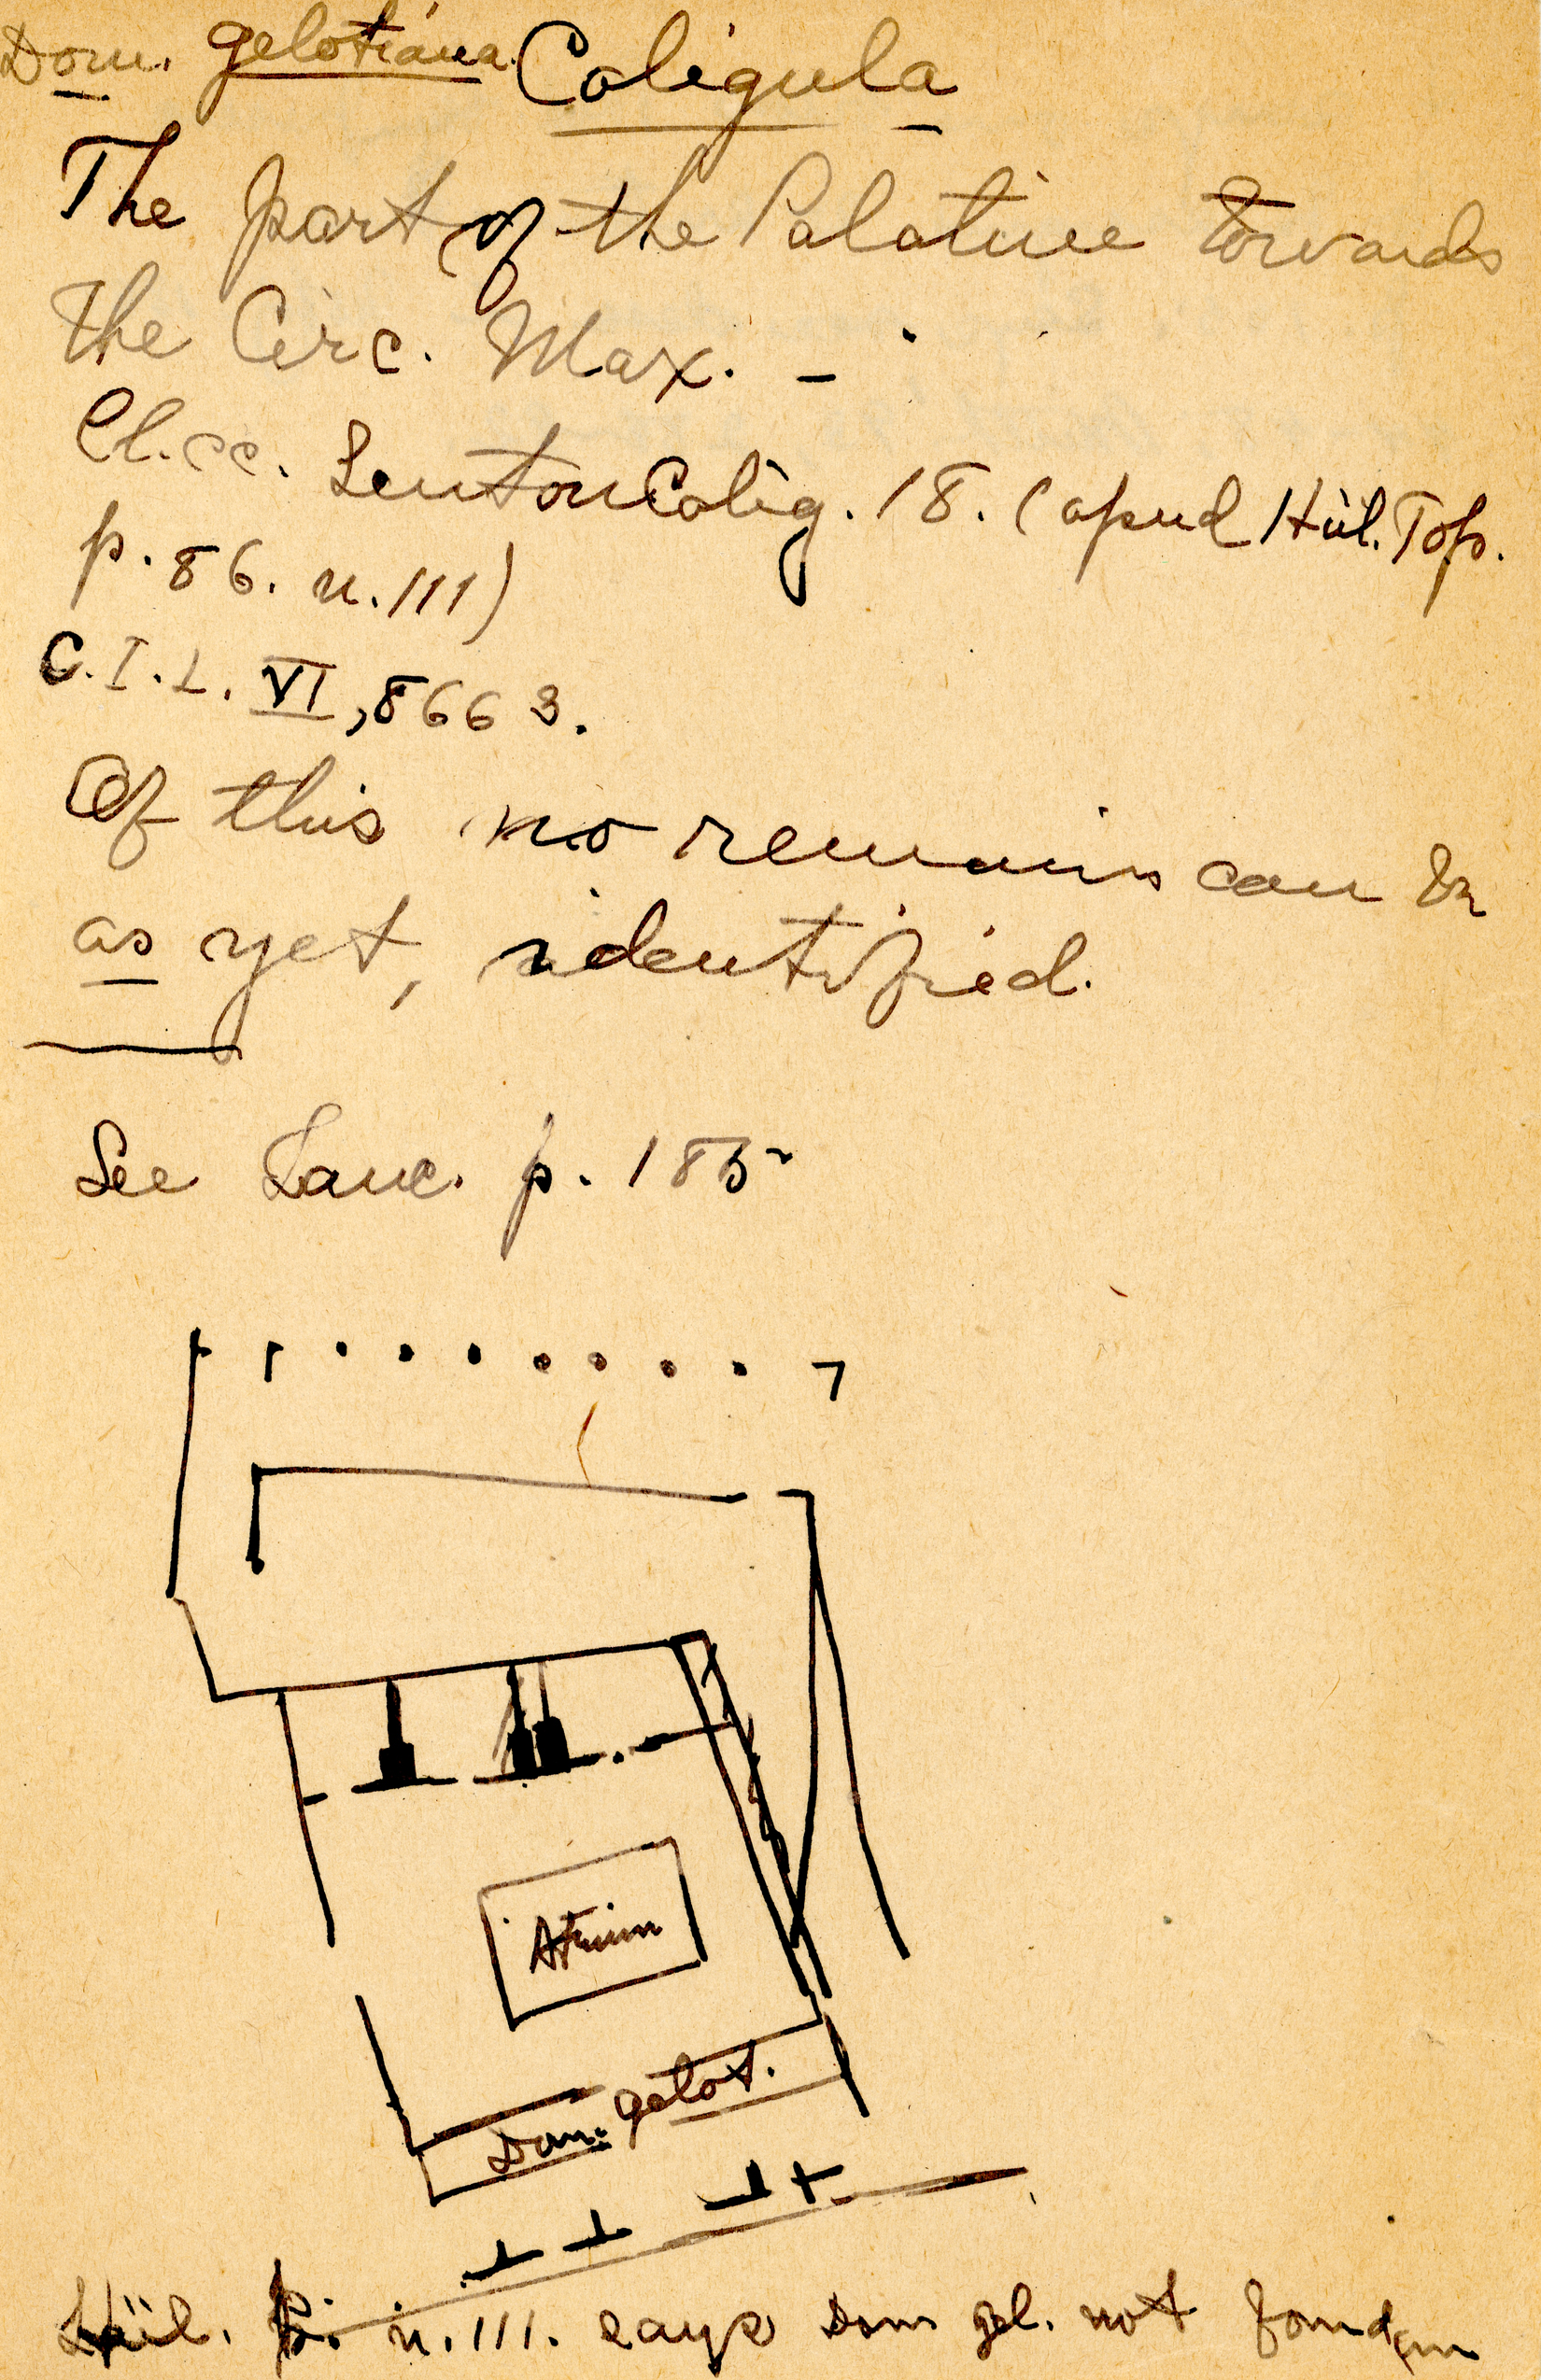 Dom. gelotiana. Caligula
The part of the Palatine towards
the Circ. Max. –
Cl. cc. Sueton Calig. 18. (apud Hül. Top.
p. 86. n. 111)
C.I.L. VI, 8663.
Of this no remains can be
as yet, identified.
See Lanc. p. 185
Atrium
Dom. gelot.
Hül. n. 111. says Dom gel. not found